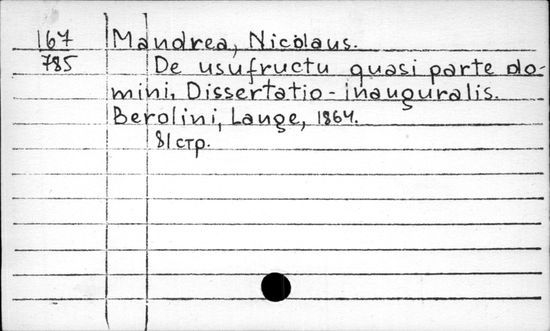 167 Mandrea, Nicolaus.
785 De usufructu quasi parte do-
mini. Dissertatio-inauguralis.
Berolini, Lange, 1864.
81 стр.